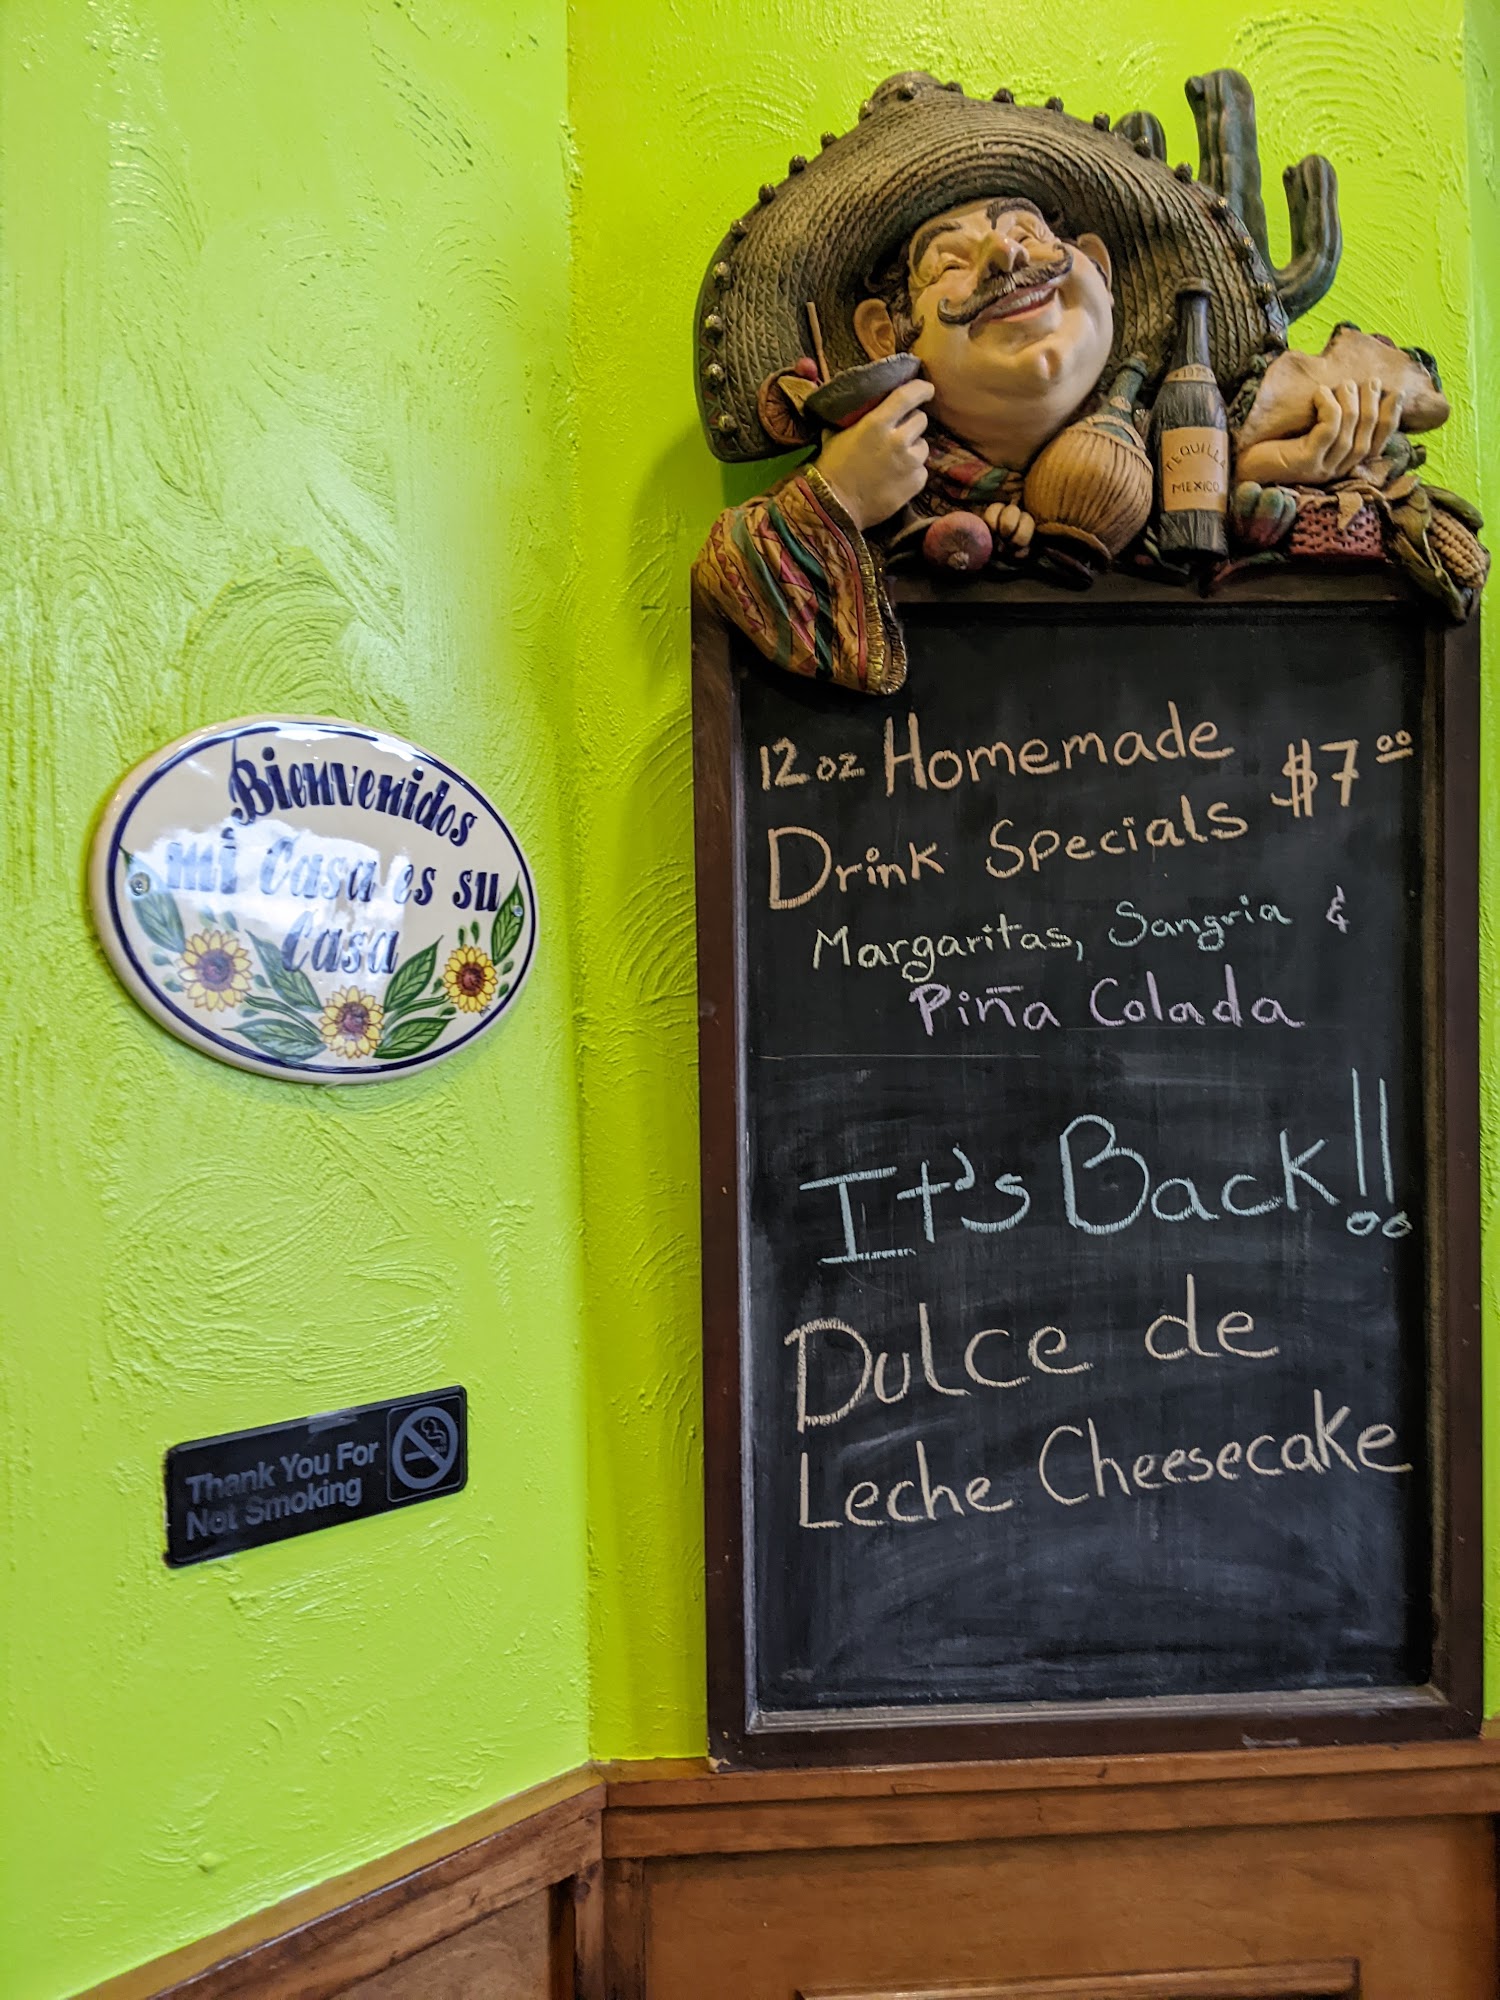 Bienvenidos
mi Casa es su
Casa
Thank You For
Not Smoking
1925
TEQUILLA
MEXICO
12oz Homemade
Drink Specials $7.00
Margaritas, Sangria &
Piña Colada
It's Back!!
Dulce de
Leche Cheesecake